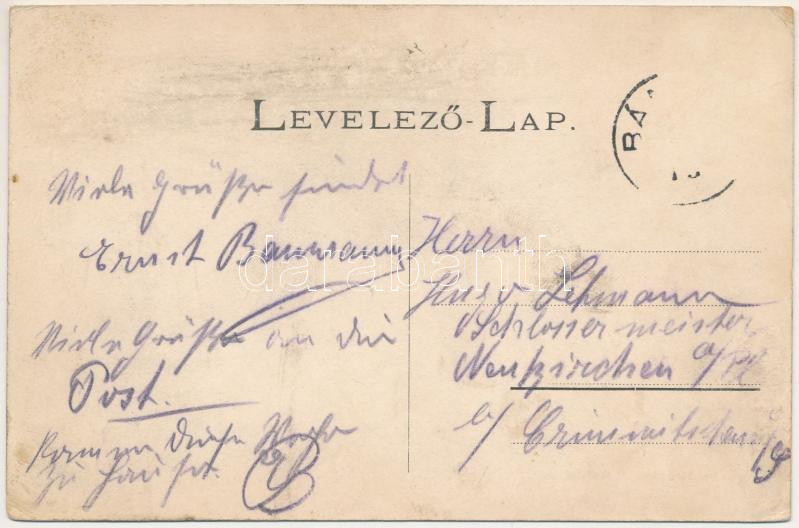 LEVELEZŐ-LAP.
BÁ
Viele Grüße sendet
Ernst Baumann
Viele Grüße an die
Post.
Komme diese Woche
zu Hause.
Herrn
Hugo Lehmann
Schlossermeister
Neukirchen a/Pl
b/ Crimmitschau
darabanth